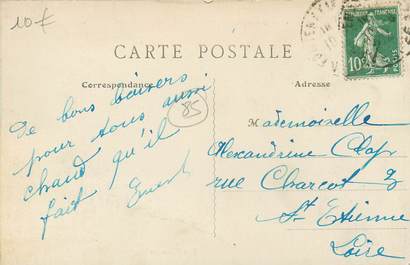 10€
CARTE POSTALE
Correspondance
Adresse
De bons baisers
pour tous aussi
chaud qu'il
fait
Ernest
85
Mademoiselle
Alexandrine Clap
rue Charcot 3
St Etienne
Loire
REPUBLIQUE FRANCAISE
10c
POSTES